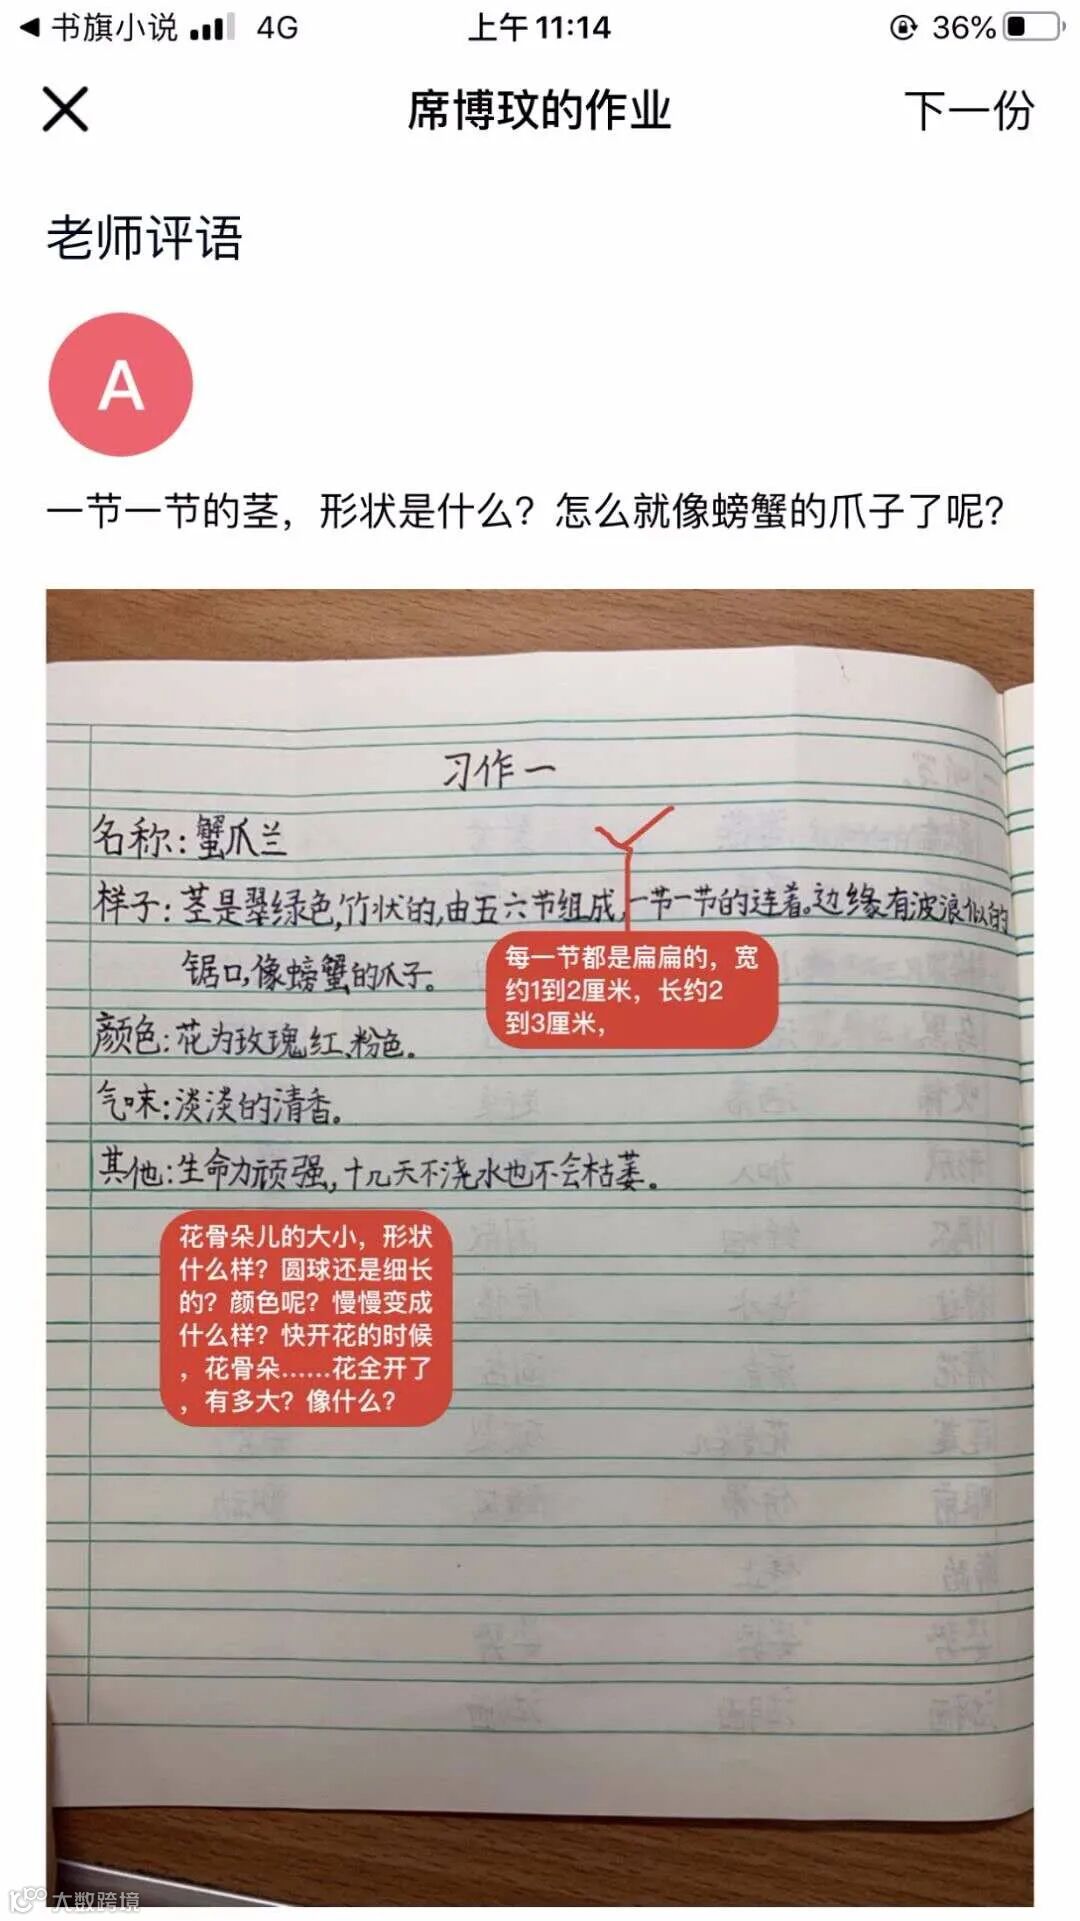 书旗小说 4G 上午11:14 36%
席博玟的作业 下一份
老师评语
A
一节一节的茎，形状是什么？怎么就像螃蟹的爪子了呢？
习作一
名称：蟹爪兰
样子：茎是翠绿色，竹状的，由五六节组成，一节一节的连着。边缘有波浪似的
锯口，像螃蟹的爪子。
每一节都是扁扁的，宽
约1到2厘米，长约2
到3厘米，
颜色：花为玫瑰红、粉色。
气味：淡淡的清香。
其他：生命力顽强，十几天不浇水也不会枯萎。
花骨朵儿的大小，形状
什么样？圆球还是细长
的？颜色呢？慢慢变成
什么样？快开花的时候
，花骨朵……花全开了
，有多大？像什么？
大数跨境